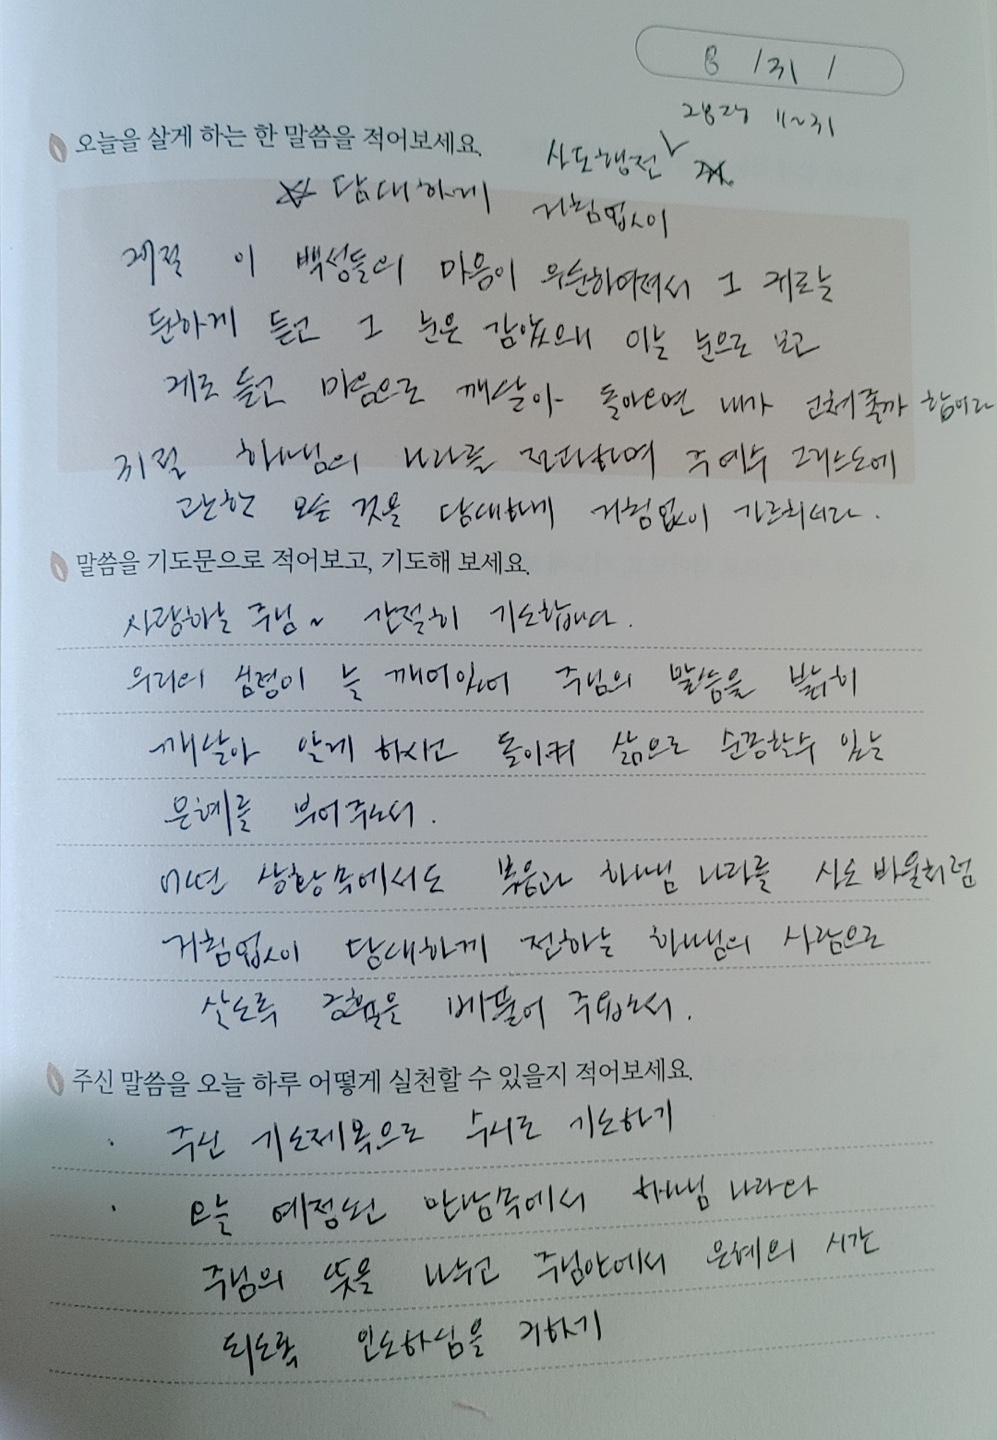 8 / 31 /
28장 11~31
오늘을 살게 하는 한 말씀을 적어보세요.
사도행전
☆ 담대하게 거침없이
27절 이 백성들의 마음이 우둔하여져서 그 귀로는
둔하게 듣고 그 눈은 감았으매 이는 눈으로 보고
귀로 듣고 마음으로 깨달아 돌아오면 내가 고쳐줄까 함이라
31절 하나님의 나라를 전파하며 주 예수 그리스도에
관한 모든 것을 담대하게 거침없이 가르치시라.
말씀을 기도문으로 적어보고, 기도해 보세요.
사랑하는 주님~ 간절히 기도합니다.
우리의 심령이 늘 깨어있어 주님의 말씀을 밝히
깨달아 알게 하시고 돌이켜 삶으로 순종할수 있는
은혜를 부어주소서.
어떤 상황속에서도 복음과 하나님 나라를 사도 바울처럼
거침없이 담대하게 전하는 하나님의 사람으로
살도록 긍휼을 베풀어 주옵소서.
주신 말씀을 오늘 하루 어떻게 실천할 수 있을지 적어보세요.
· 주신 기도제목으로 수시로 기도하기
· 오늘 예정된 만남속에서 하나님 나라와
주님의 뜻을 나누고 주님안에서 은혜의 시간
되도록 인도하심을 구하기